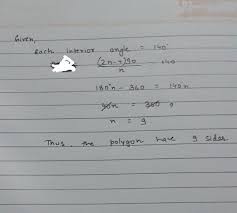 Given,
Each interior angle = 140°
(2n-4)90 / n = 140
180n - 360 = 140n
40n = 360
n = 9
Thus, the polygon have 9 sides.